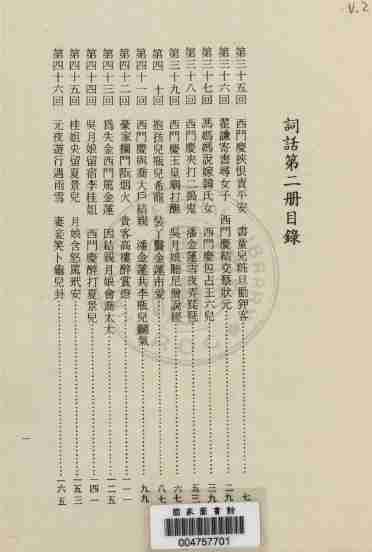 V.2
詞話第二冊目錄
第三十五回 西門慶挾恨責平安 書童兒粧旦勸狎客……七
第三十六回 翟謙寄書尋女子 西門慶結交蔡狀元……二九
第三十七回 馮媽媽說嫁韓氏女 西門慶包占王六兒……三九
第三十八回 西門慶夾打二搗鬼 潘金蓮雪夜弄琵琶……五三
第三十九回 西門慶玉皇廟打醮 吳月娘聽尼僧說經……六七
第四十回 抱孩兒瓶兒希寵 裝丫鬟金蓮市愛……八
第四十一回 西門慶與喬大戶結親 潘金蓮共李瓶兒鬭氣……九九
第四十二回 豪家攔門玩烟火 貴客高樓醉賞燈……一一一
第四十三回 爲失金西門罵金蓮 因結親月娘會喬太太……一二五
第四十四回 吳月娘留宿李桂姐 西門慶醉打夏景兒……一四一
第四十五回 桂姐央留夏景兒 月娘含怒罵玳安……一五三
第四十六回 元夜遊行遇雨雪 妻妾笑卜龜兒卦……一六五
一
國家圖書館
004757701